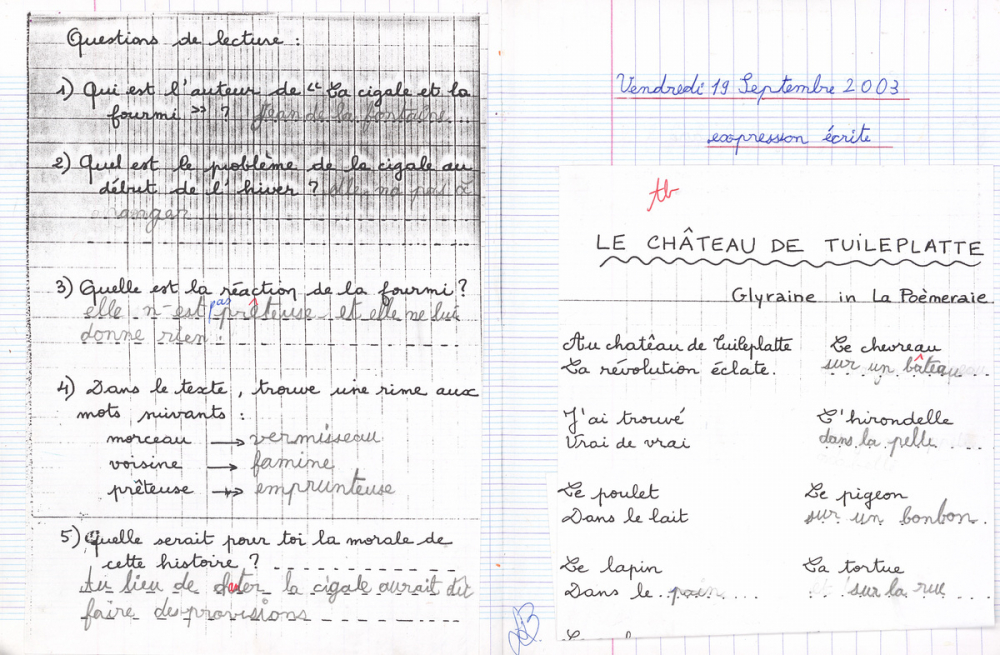 Questions de lecture :
1) Qui est l'auteur de " La cigale et la
fourmi » ? Jean de la fontaine
2) Quel est le problème de la cigale au
début de l'hiver ? elle n'a pas à
manger
3) Quelle est la réaction de la fourmi ?
elle n'est pas prêteuse et elle ne lui
donne rien.
4) Dans le texte, trouve une rime aux
mots suivants :
morceau → vermisseau
voisine → famine
prêteuse → emprunteuse
5) Quelle serait pour toi la morale de
cette histoire ?
Au lieu de la cigale aurait dû
faire des provisions
Vendredi 19 Septembre 2003
expression écrite
tb
LE CHÂTEAU DE TUILEPLATTE
Glyraine in La Poèmeraie
Au chatêau de Tuileplatte
La révolution éclate.
J'ai trouvé
Vrai de vrai
Le poulet
Dans le lait
Le lapin
Dans le pain
Le chevreau
sur un bâteau
L'hirondelle
dans la pelle
Le pigeon
sur un bonbon.
La tortue
sur la rue